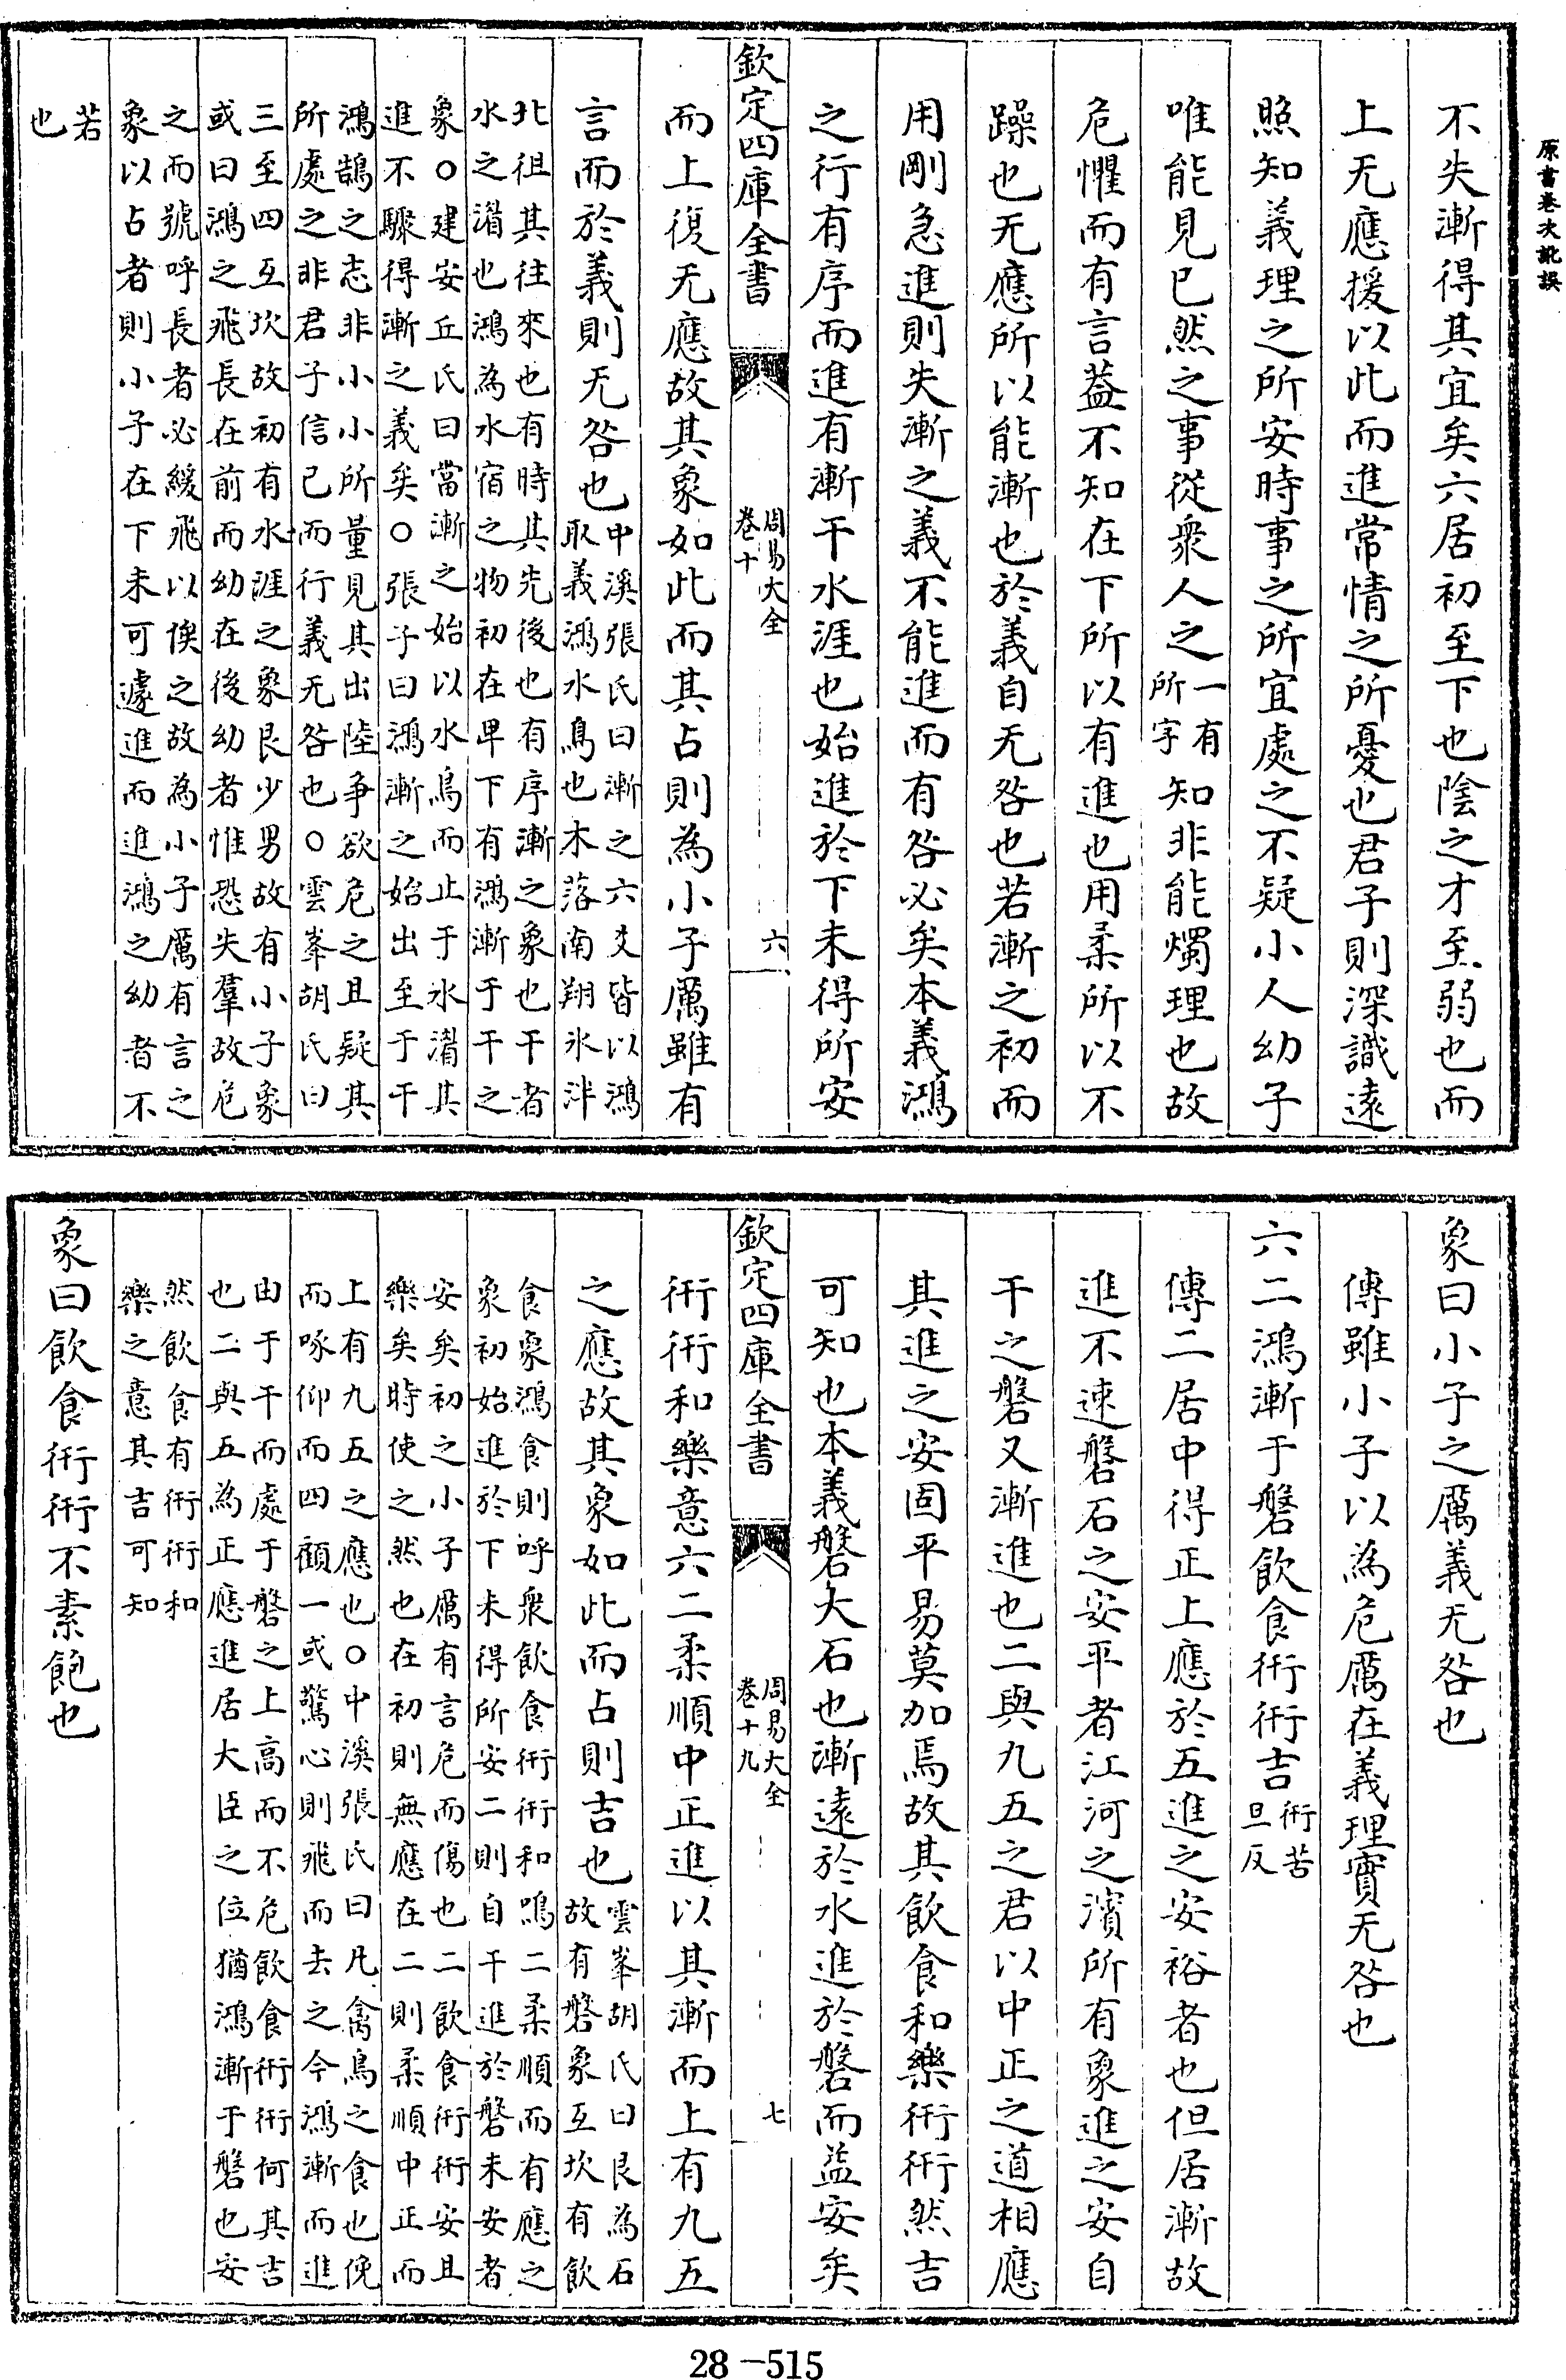 原書卷次訛誤
不失漸得其宜矣六居初至下也陰之才至弱也而
上无應援以此而進常情之所憂也君子則深識遠
照知義理之所安時事之所宜處之不疑小人幼子
唯能見已然之事從衆人之一有所字知非能燭理也故
危懼而有言葢不知在下所以有進也用柔所以不
躁也无應所以能漸也於義自无咎也若漸之初而
用剛急進則失漸之義不能進而有咎必矣本義鴻
之行有序而進有漸干水涯也始進於下未得所安
欽定四庫全書
周易大全
卷十
六
而上復无應故其象如此而其占則為小子厲雖有
言而於義則无咎也中溪張氏曰漸之六爻皆以鴻
取義鴻水鳥也木落南翔氷泮
北徂其往來也有時其先後也有序漸之象也干者
水之湄也鴻為水宿之物初在卑下有鴻漸于干之
象○建安丘氏曰當漸之始以水鳥而止于水湄其
進不驟得漸之義矣○張子曰鴻漸之始出至于干
鴻鵠之志非小小所量見其出陸爭欲危之且疑其
所處之非君子信已而行義无咎也○雲峯胡氏曰
三至四互坎故初有水涯之象艮少男故有小子象
或曰鴻之飛長在前而幼在後幼者惟恐失羣故危
之而號呼長者必緩飛以俟之故為小子厲有言之
象以占者則小子在下未可遽進而進鴻之幼者不
若
也
象曰小子之厲義无咎也
傳雖小子以為危厲在義理實无咎也
六二鴻漸于磐飲食衎衎吉衎苦旦反
傳二居中得正上應於五進之安裕者也但居漸故
進不速磐石之安平者江河之濱所有象進之安自
干之磐又漸進也二與九五之君以中正之道相應
其進之安固平易莫加焉故其飲食和樂衎衎然吉
可知也本義磐大石也漸遠於水進於磐而益安矣
欽定四庫全書
周易大全
卷十九
七
衎衎和樂意六二柔順中正進以其漸而上有九五
之應故其象如此而占則吉也雲峯胡氏曰艮為石
故有磐象互坎有飲
食象鴻食則呼衆飲食衎衎和鳴二柔順而有應之
象初始進於下未得所安二則自干進於磐未安者
安矣初之小子厲有言危而傷也二飲食衎衎安且
樂矣時使之然也在初則無應在二則柔順中正而
上有九五之應也○中溪張氏曰凡禽鳥之食也俛
而啄仰而四顧一或驚心則飛而去之今鴻漸而進
由于干而處于磐之上高而不危飲食衎衎何其吉
也二與五為正應進居大臣之位猶鴻漸于磐也安
然飲食有衎衎和
樂之意其吉可知
象曰飲食衎衎不素飽也
28-515